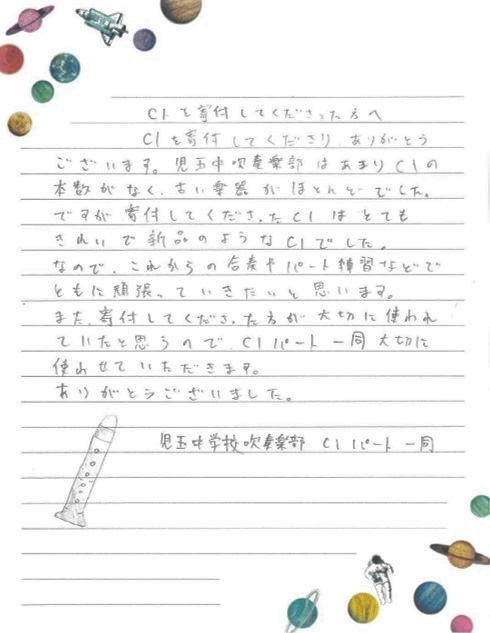 Clを寄付してくださった方へ
Clを寄付してくださり、ありがとう
ございます。児玉中吹奏楽部はあまりClの
本数がなく、古い楽器がほとんどでした。
ですが寄付してくださったClはとても
きれいで新品のようなClでした。
なので、これからの合奏やパート練習などで
ともに頑張っていきたいと思います。
また、寄付してくださった方が大切に使われ
ていたと思うので、Clパート一同大切に
使わせていただきます。
ありがとうございました。
児玉中学校吹奏楽部 Clパート一同